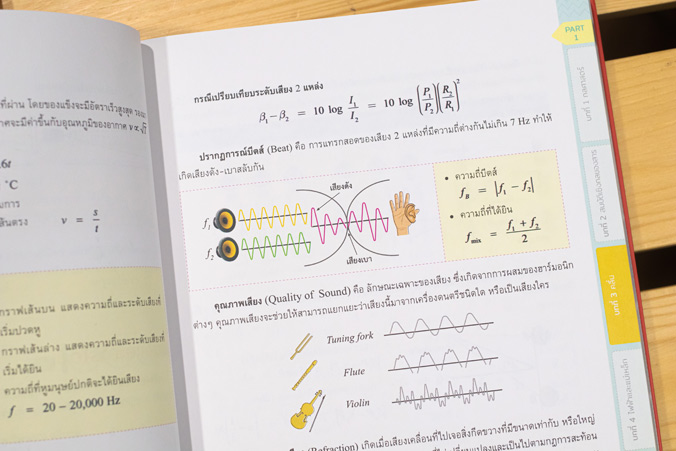 ที่ผ่าน โดยของแข็งจะมีอัตราเร็วสูงสุด
าศจะมีค่าขึ้นกับอุณหภูมิของอากาศ v ∝ √T
.6t
°C
นการ
ส้นตรง v = s/t
กราฟเส้นบน แสดงความถี่และระดับเสียงที่
เริ่มปวดหู
กราฟเส้นล่าง แสดงความถี่และระดับเสียงที่
เริ่มได้ยิน
ความถี่ที่หูมนุษย์ปกติจะได้ยินเสียง
f = 20 – 20,000 Hz
กรณีเปรียบเทียบระดับเสียง 2 แหล่ง
β₁ – β₂ = 10 log I₁/I₂ = 10 log (P₁/P₂)(R₂/R₁)²
ปรากฏการณ์บีตส์ (Beat) คือ การแทรกสอดของเสียง 2 แหล่งที่มีความถี่ต่างกันไม่เกิน 7 Hz ทำให้
เกิดเสียงดัง-เบาสลับกัน
เสียงดัง
f₁
f₂
เสียงเบา
• ความถี่บีตส์
f_B = |f₁ – f₂|
• ความถี่ที่ได้ยิน
f_mix = (f₁ + f₂)/2
คุณภาพเสียง (Quality of Sound) คือ ลักษณะเฉพาะของเสียง ซึ่งเกิดจากการผสมของฮาร์มอนิก
ต่างๆ คุณภาพเสียงจะช่วยให้สามารถแยกแยะว่าเสียงนี้มาจากเครื่องดนตรีชนิดใด หรือเป็นเสียงใคร
Tuning fork
Flute
Violin
(Refraction) เกิดเมื่อเสียงเคลื่อนที่ไปเจอสิ่งกีดขวางที่มีขนาดเท่ากับ หรือใหญ่
เปลี่ยนแปลงและเป็นไปตามกฎการสะท้อน
PART
1
บทที่ 1 กลศาสตร์
บทที่ 2 สมบัติเชิงกลของสาร
บทที่ 3 คลื่น
บทที่ 4 ไฟฟ้าและแม่เหล็ก